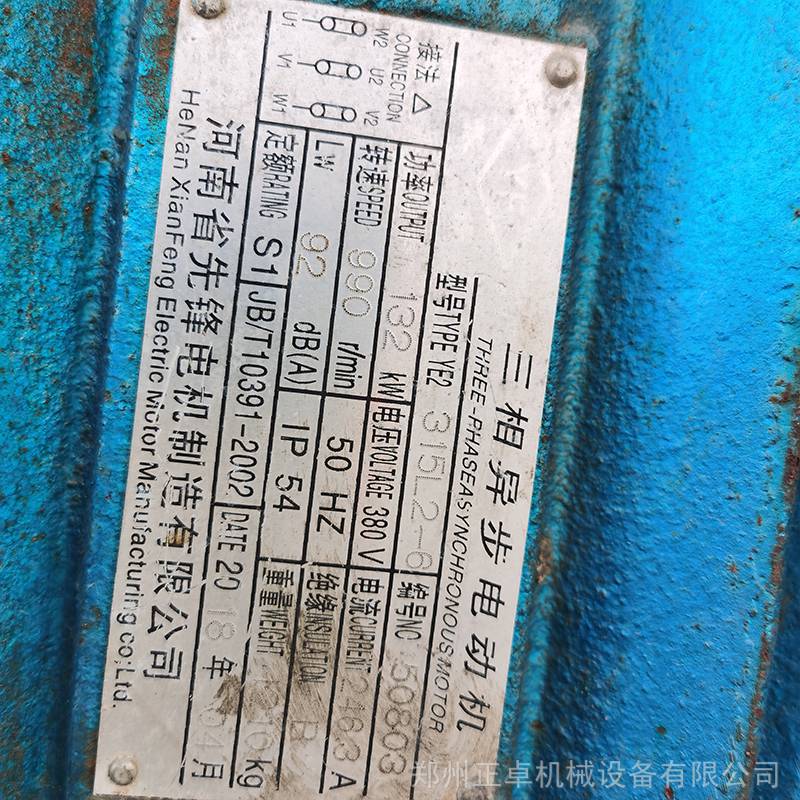 三相异步电动机
THREE-PHASEASYNCHRONOUSMOTOR
型号TYPE YE2 315L2-6 编号NO 50803
功率OUTPUT 132 kW 电压VOLTAGE 380 V 电流CURRENT 246.3 A
转速SPEED 990 r/min 50 HZ 绝缘INSULATION B
LW 92 dB(A) IP 54 重量WEIGHT kg
定额RATING S1 JB/T10391-2002 DATE 20 18 年 04 月
接法 △
CONNECTION
W2 U2 V2
U1 V1 W1
河南省先锋电机制造有限公司
HeNan XianFeng Electric Motor Manufacturing co;Ltd.
郑州正卓机械设备有限公司